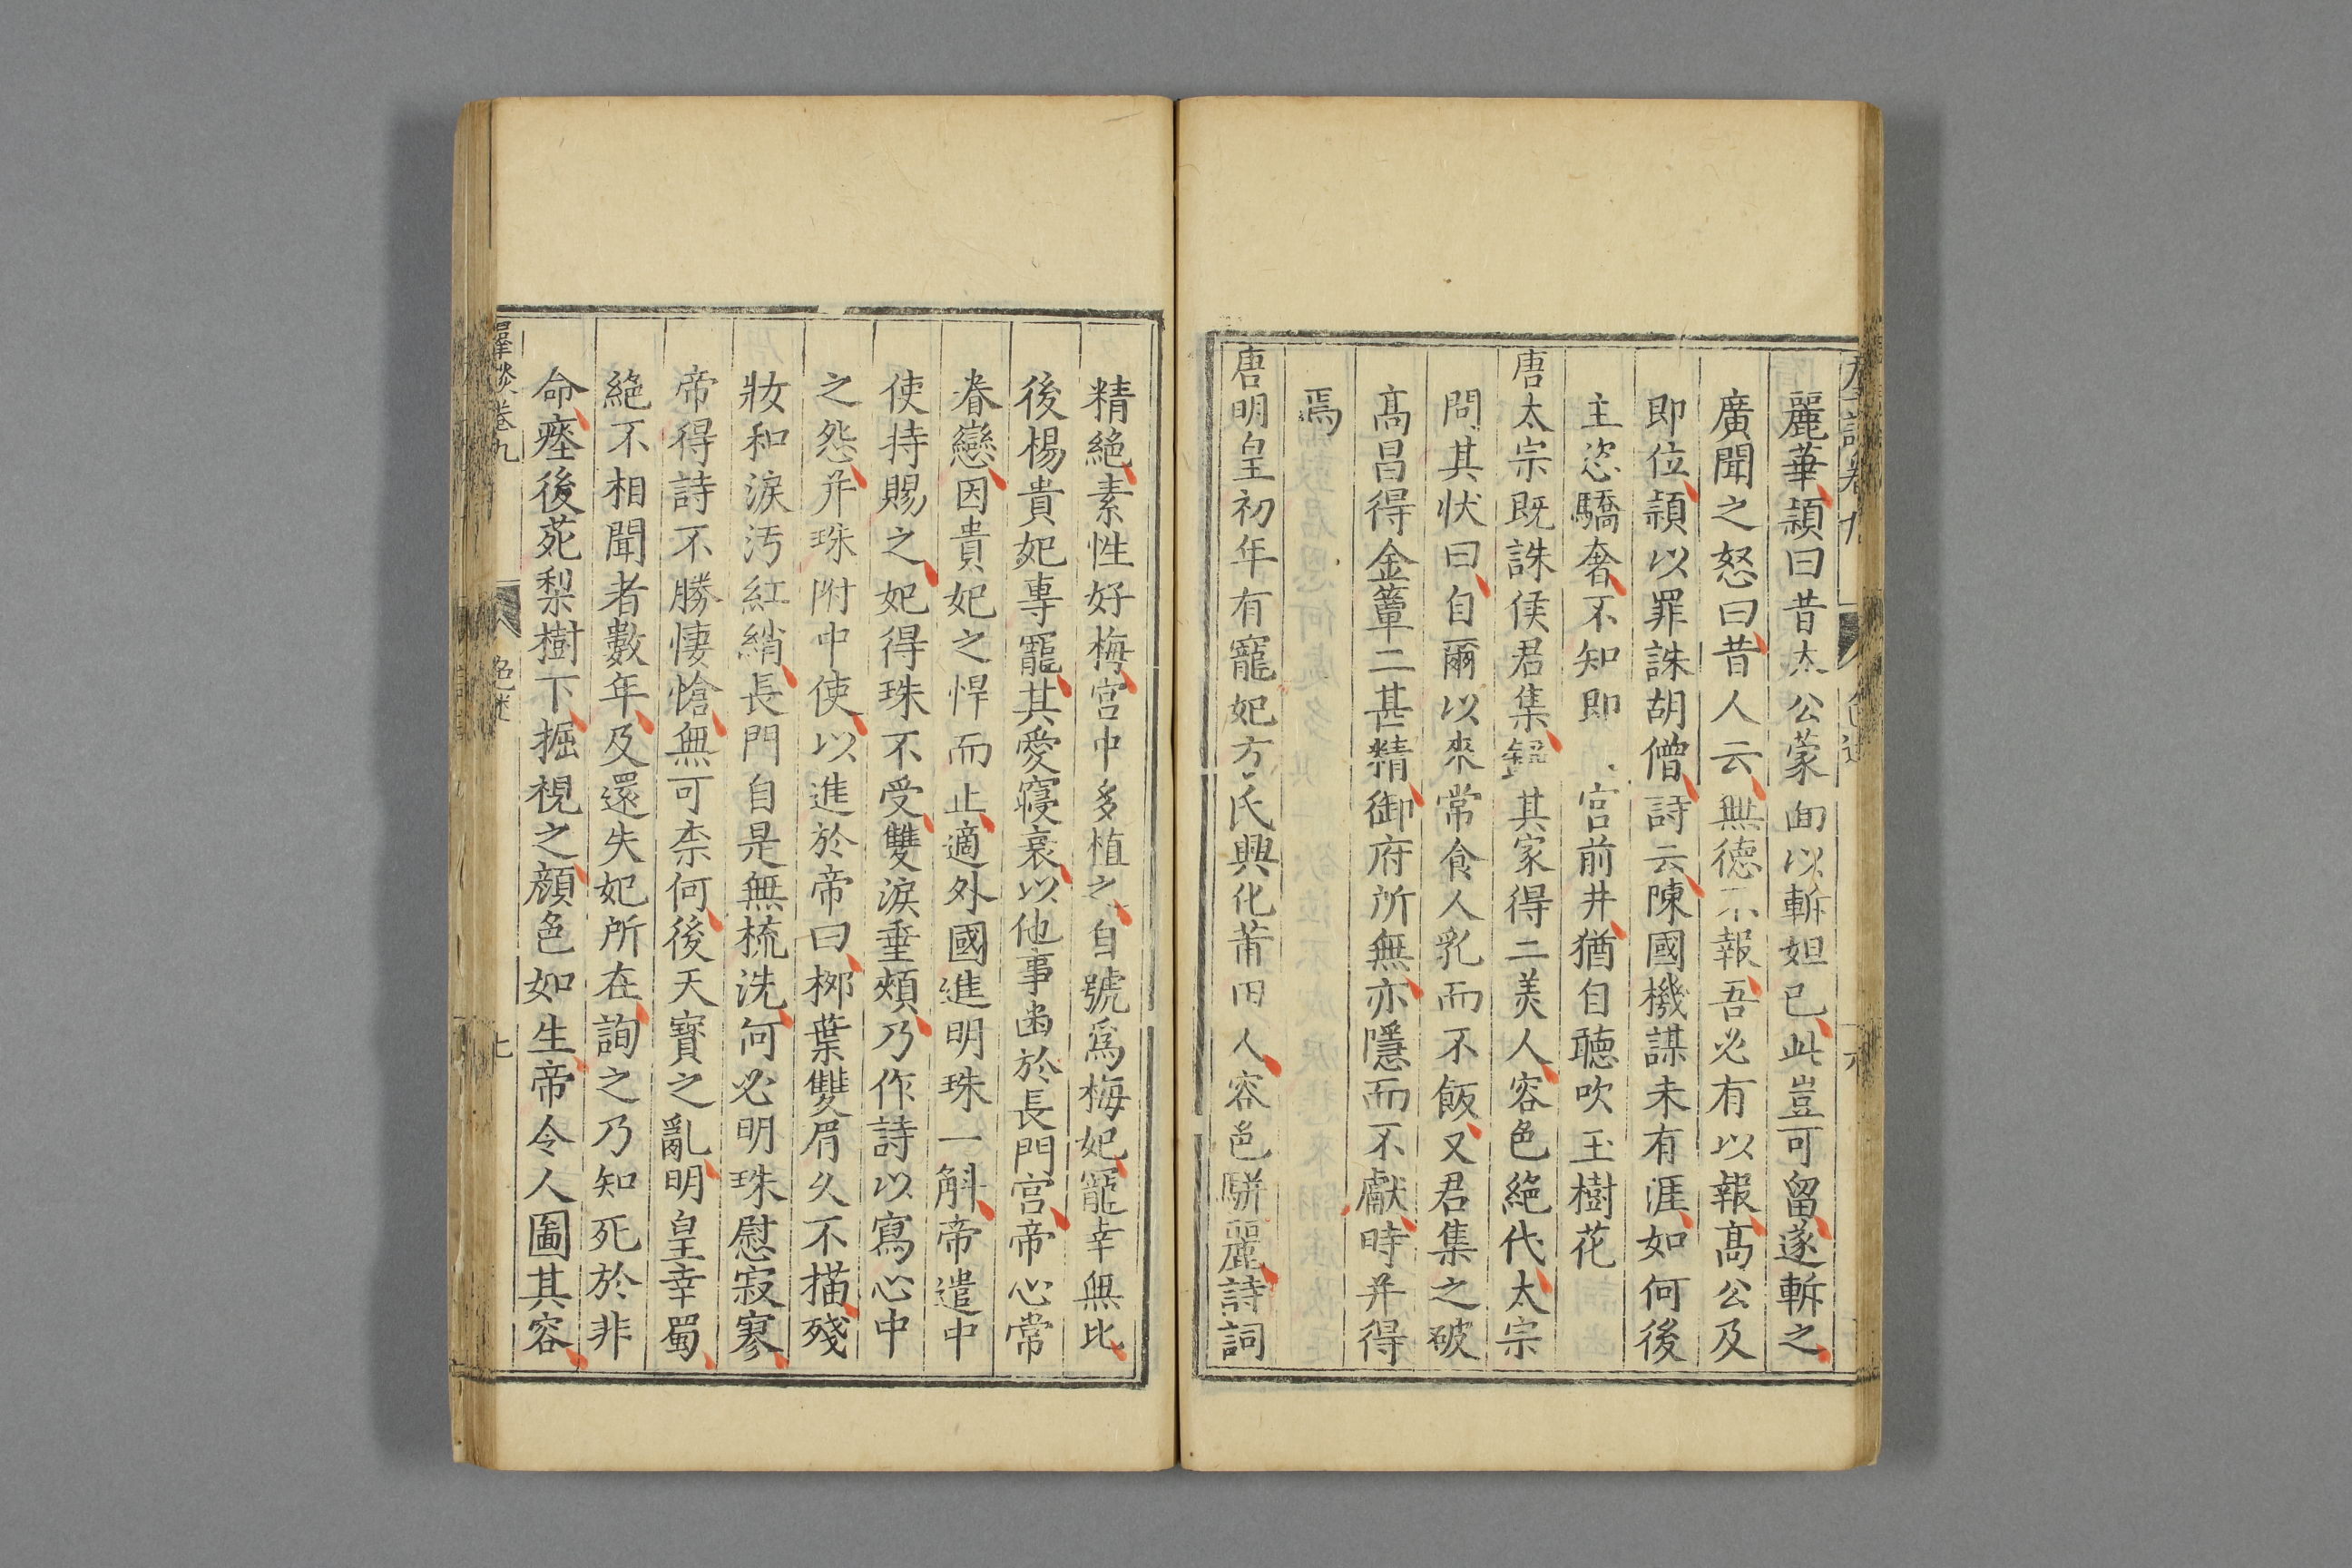 麗華頴曰昔太公蒙面以斬妲已此豈可留遂斬之
廣聞之怒曰昔人云無德不報吾必有以報髙公及
即位頴以罪誅胡僧詩云陳國機謀未有涯如何後
主恣驕奢不知即宫前井猶自聴吹玉樹花
唐太宗既誅侯君集其家得二美人容色絕代太宗
問其状曰自爾以來常食人乳而不飯又君集之破
髙昌得金簟二甚精御府所無亦隱而不獻時并得
焉
唐明皇初年有寵妃方氏興化莆田人容色駢麗詩詞
精絕素性好梅宫中多植之自號爲梅妃寵幸無比
後楊貴妃專寵其愛寖衰以他事幽於長門宫帝心常
眷戀因貴妃之悍而止適外國進明珠一斛帝遣中
使持賜之妃得珠不受雙淚垂頰乃作詩以寫心中
之怨并珠附中使以進於帝曰桞葉雙眉久不描殘
妝和淚汚紅綃長門自是無梳洗何必明珠慰寂寥
帝得詩不勝悽愴無可柰何後天寳之亂明皇幸蜀
絕不相聞者數年及還失妃所在詢之乃知死於非
命瘞後苑梨樹下掘視之顔色如生帝令人圖其容
卷九
色迷
七